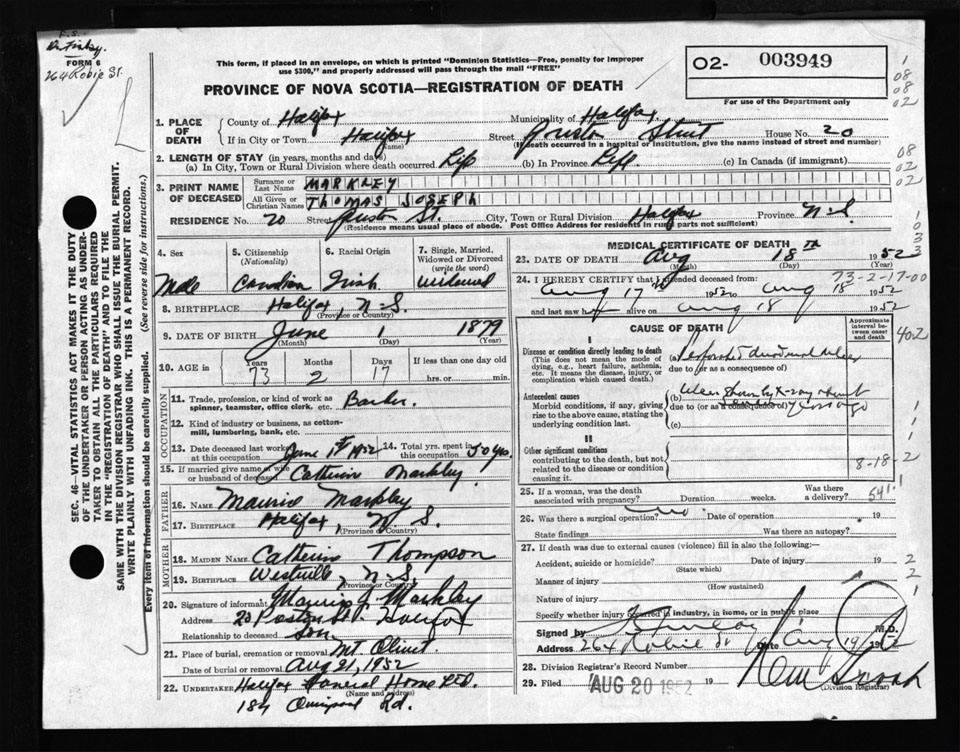 F.S.
Dr. Finlay.
FORM 6
264 Robie St.
This form, if placed in an envelope, on which is printed "Dominion Statistics—Free, penalty for improper
use $300," and properly addressed will pass through the mail "FREE"
PROVINCE OF NOVA SCOTIA—REGISTRATION OF DEATH
02- 003949
For use of the Department only
1
08
08
02
1. PLACE OF DEATH
County of Halifax Municipality of Halifax
If in City or Town Halifax (Name) Street Preston Street House No. 20
(If death occurred in a hospital or institution, give the name instead of street and number)
2. LENGTH OF STAY (in years, months and days)
(a) In City, Town or Rural Division where death occurred Life (b) In Province Life (c) In Canada (if immigrant)
08
02
02
3. PRINT NAME OF DECEASED
Surname or Last Name MARKLEY
All Given or Christian Names THOMAS JOSEPH
RESIDENCE No. 20 Street Preston St. City, Town or Rural Division Halifax Province N.S.
(Residence means usual place of abode. Post Office Address for residents in rural parts not sufficient)
1
0
3
3
4. Sex Male
5. Citizenship (Nationality) Canadian
6. Racial Origin Irish
7. Single, Married, Widowed or Divorced (write the word) widowed
8. BIRTHPLACE Halifax, N.S.
(Province or Country)
9. DATE OF BIRTH June 1 1879
(Month) (Day) (Year)
10. AGE in Years 73 Months 2 Days 17 If less than one day old
hrs. or min.
OCCUPATION
11. Trade, profession, or kind of work as
spinner, teamster, office clerk, etc. Barber.
12. Kind of industry or business, as cotton-
mill, lumbering, bank, etc.
13. Date deceased last worked at this occupation June 1st 1952 14. Total yrs. spent in this occupation 50 yrs.
15. If married give name of wife
or husband of deceased Catherine Markley
FATHER
16. NAME Maurice Markley
17. BIRTHPLACE Halifax, N.S.
(Province or Country)
MOTHER
18. MAIDEN NAME Catherine Thompson
19. BIRTHPLACE Westville, N.S.
(Province or Country)
20. Signature of informant Maurice J. Markley
Address 20 Preston St. Halifax
Relationship to deceased Son
21. Place of burial, cremation or removal Mt Olivet.
Date of burial or removal Aug 21, 1952
22. UNDERTAKER Halifax Funeral Home Ltd.
(Name and address)
184 Quinpool Rd.
MEDICAL CERTIFICATE OF DEATH
23. DATE OF DEATH Aug 18th 1952
(Month) (Day)
24. I HEREBY CERTIFY that I attended deceased from
73-2-17-00
Aug 17th 1952 to Aug 18 1952
and last saw h alive on Aug 18 1952
CAUSE OF DEATH
Approximate interval between onset and death
I
Disease or condition directly leading to death
(This does not mean the mode of
dying, e.g., heart failure, asthenia,
etc. It means the disease, injury, or
complication which caused death.)
(a) Perforated duodenal ulcer
due to (or as a consequence of)
Antecedent causes
Morbid conditions, if any, giving
rise to the above cause, stating the
underlying condition last.
(b) Ulcer shown by X-ray
due to (or as a consequence of) years ago
(c)
II
Other significant conditions
contributing to the death, but not
related to the disease or condition
causing it.
8-18-2
25. If a woman, was the death
associated with pregnancy? Duration weeks. Was there a delivery?
541.1
26. Was there a surgical operation? no Date of operation 19
State findings Was there an autopsy?
27. If death was due to external causes (violence) fill in also the following:—
Accident, suicide or homicide? Date of injury 19
(State which)
Manner of injury
(How sustained)
Nature of injury
Specify whether injury occurred in industry, in home, or in public place
Signed by Finlay M.D.
Address 264 Robie St Date Aug 19 1952
28. Division Registrar's Record Number
29. Filed AUG 20 1952 19
(Division Registrar)
SEC. 46—VITAL STATISTICS ACT MAKES IT THE DUTY
OF THE UNDERTAKER OR PERSON ACTING AS UNDER-
TAKER TO OBTAIN ALL THE PARTICULARS REQUIRED
IN THE "REGISTRATION OF DEATH" AND TO FILE THE
SAME WITH THE DIVISION REGISTRAR WHO SHALL ISSUE THE BURIAL PERMIT.
WRITE PLAINLY WITH UNFADING INK. THIS IS A PERMANENT RECORD.
Every item of information should be carefully supplied. (See reverse side for instructions.)